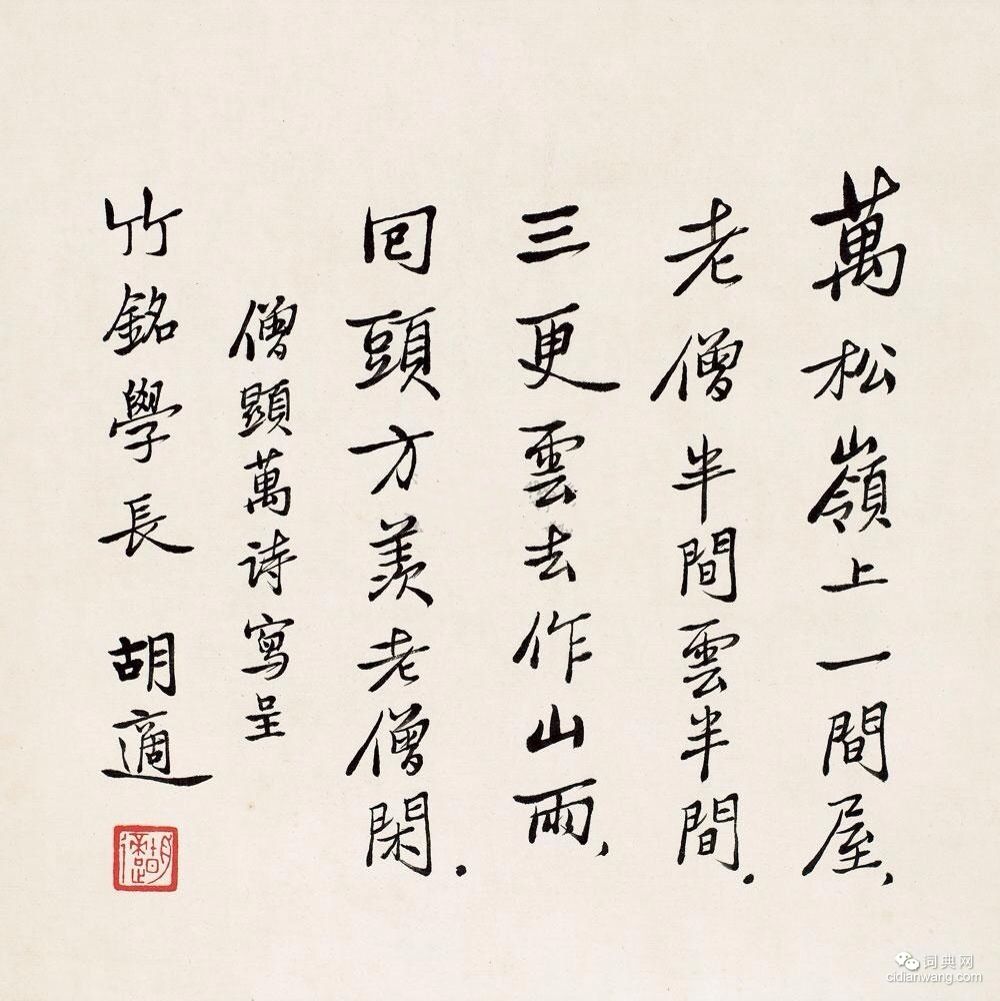 萬松嶺上一間屋、
老僧半間雲半間．
三更雲去作山雨、
回頭方羨老僧閑．
僧顯萬詩寫呈
竹銘學長 胡適
胡適
词典网
cidianwang.com